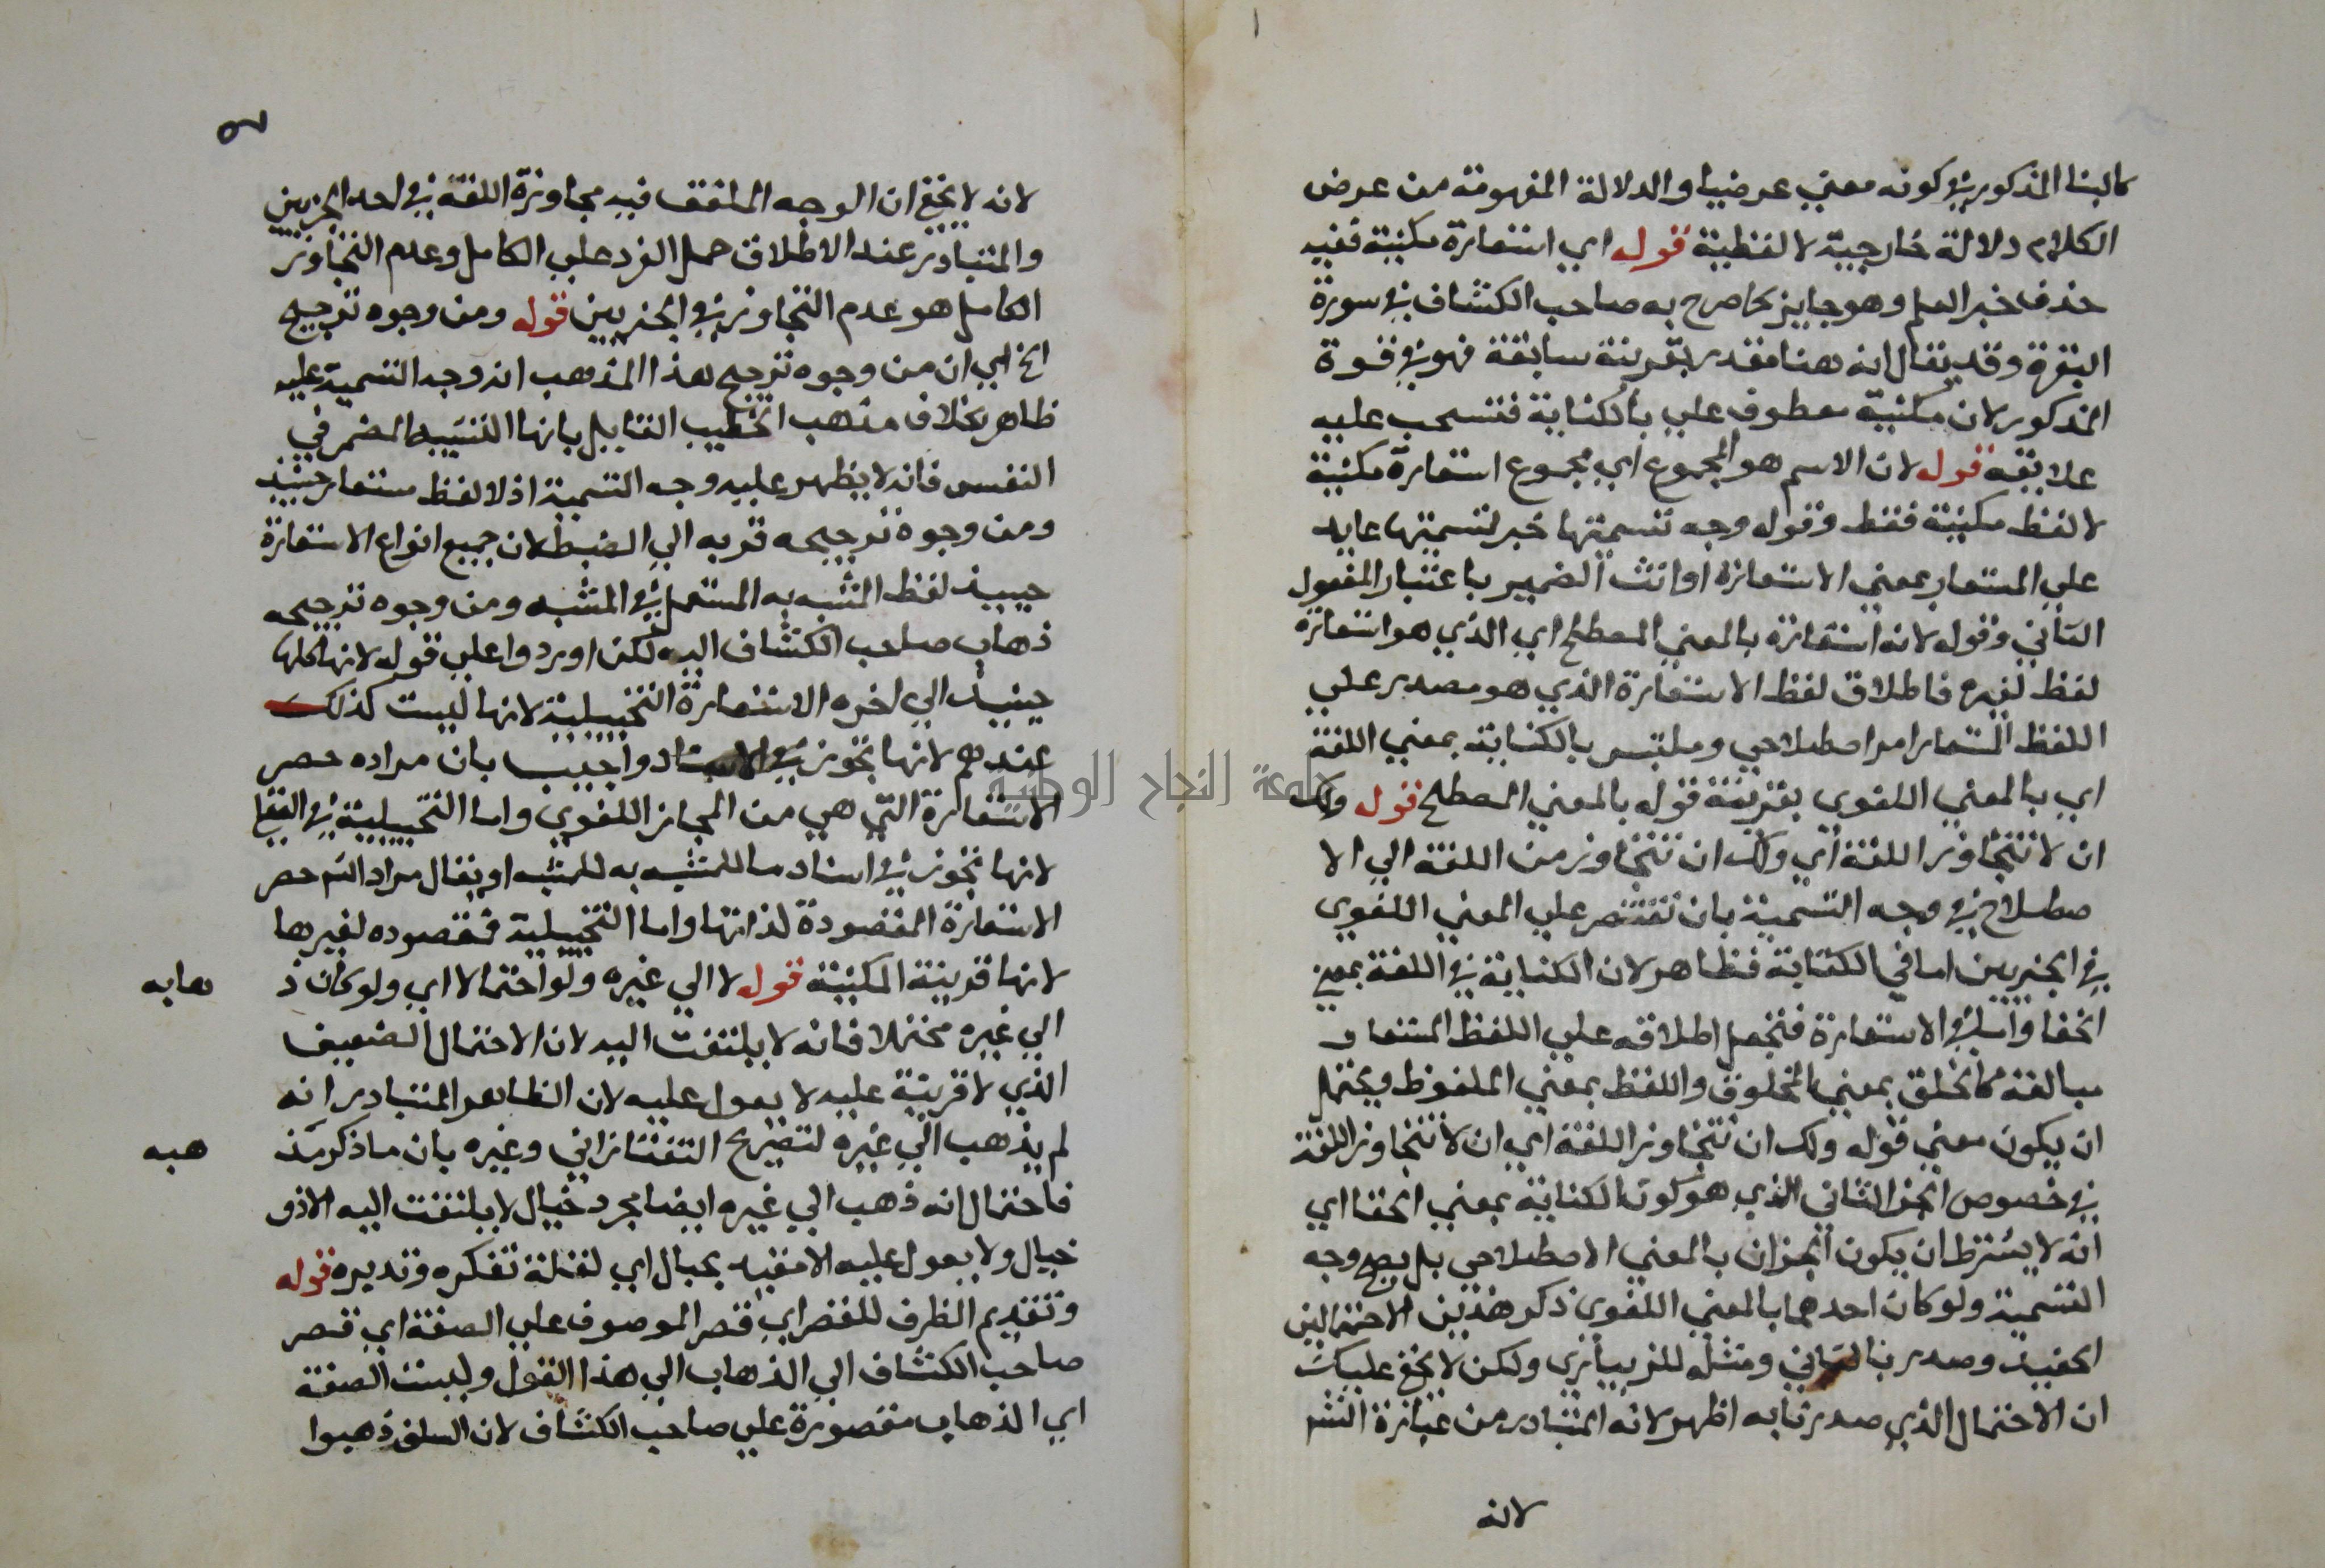 كالبنا المذكور في كونه معني عرضيا والدلالة المفهومة من عرض
الكلام دلالة خارجية لا لفظية قوله اي استعارة مكنية ففيه
حذف خبر العلم وهو جايز كما صرح به صاحب الكشاف في سورة
البقرة وقد يقال انه هنا مقدر بقرينة سابقة فهو في قوة
المذكور لان مكنية معطوف علي بالكناية فتسحب عليه
علايقه قوله لان الاسم هو المجموع اي مجموع استعارة مكنية
لا لفظ مكنية فقط وقوله وجه تسميتها خبر لتسميتها عايد
علي المستعار بمعني الاستعارة او انث الضمير باعتبار المفعول
الثاني وقوله لانه استعارة بالمعني المصطلح اي الذي هو استعارة
لفظ لغيره فاطلاق لفظ الاستعارة الذي هو مصدر علي
اللفظ المستعار امر اصطلاحي وملتبس بالكناية بمعني اللغة
اي بالمعني اللغوي بقرينة قوله بالمعني المصطلح قوله ولك
ان لا تتجاوز اللغة اي ولك ان تتجاوز من اللغة الي الا
صطلاح في وجه التسمية بان تقتصر علي المعني اللغوي
في الجزيين اما في الكناية فظاهر لان الكناية في اللغة بمعني
الخفا واما في الاستعارة فتجعل اطلاقه علي اللفظ المستعار
مبالغة كالخلق بمعني المخلوق واللفظ بمعني الملفوظ ويحتمل
ان يكون معني قوله ولك ان تتجاوز اللغة اي ان لا تتجاوز اللغة
في خصوص الجز الثاني الذي هو كون الكناية بمعني الخفا اي
انه لا يشترط ان يكون الجزان بالمعني الاصطلاحي بل يصح وجه
التسمية ولو كان احدهما بالمعني اللغوي ذكر هذين الاحتمالين
الحفيد وصدر بالثاني ومثله للزيباري ولكن لا يخفي عليك
ان الاحتمال الذي صدرنا به اظهر لانه المتبادر من عبارة الشم
لانه
لانه لا يخفي ان الوجه الملفق فيه مجاوزة اللغة في احد الجزيين
والمتبادر عند الاطلاق حمل الفرد علي الكامل وعدم التجاوز
الكامل هو عدم التجاوز في الجزيين قوله ومن وجوه ترجيح
الخ اي ان من وجوه ترجيح هذا المذهب ان وجه التسمية عليه
ظاهر بخلاف مذهب الخطيب القايل بانها التشبيه المضمر في
النفس فانه لا يظهر عليه وجه التسمية اذ لا لفظ مستعار حينيذ
ومن وجوه ترجيحه قربه الي الضبط لان جميع انواع الاستعارة
حينيذ لفظ المشبه به المستعمل في المشبه ومن وجوه ترجيحه
ذهاب صاحب الكشاف اليه لكن اوردوا علي قوله لانها كلها
حينيذ الي اخره الاستعارة التخييلية لانها ليست كذلك
عندهم لانها تجوز في الاسناد واجيب بان مراده حصر
الاستعارة التي هي من المجاز اللغوي واما التخييلية في العقلي
لانها تجوز في اسناد ما للمشبه به للمشبه او يقال مراد الشم حصر
الاستعارة المقصودة لذاتها واما التخييلية فمقصوده لغيرها
لانها قرينة المكنية قوله لا الي غيره ولو احتمالا اي ولو كان ذ
هابه
الي غيره محتملا فانه لا يلتفت اليه لان الاحتمال الضعيف
الذي لا قرينة عليه لا يعول عليه لان الظاهر المتبادر انه
لم يذهب الي غيره لتصريح التفتازاني وغيره بان ما ذكر مذ
هبه
فاحتمال انه ذهب الي غيره ايضا مجرد خيال لا يلتفت اليه الا ذو
خيال ولا يعول عليه الا مقيد بحبال اي لقلة تفكره وتدبره قوله
وتقديم الظرف للقصر اي قصر الموصوف علي الصفة اي قصر
صاحب الكشاف الي الذهاب الي هذا القول وليست الصفة
اي الذهاب مقصورة علي صاحب الكشاف لان السلف ذهبوا
جامعة النجاح الوطنية